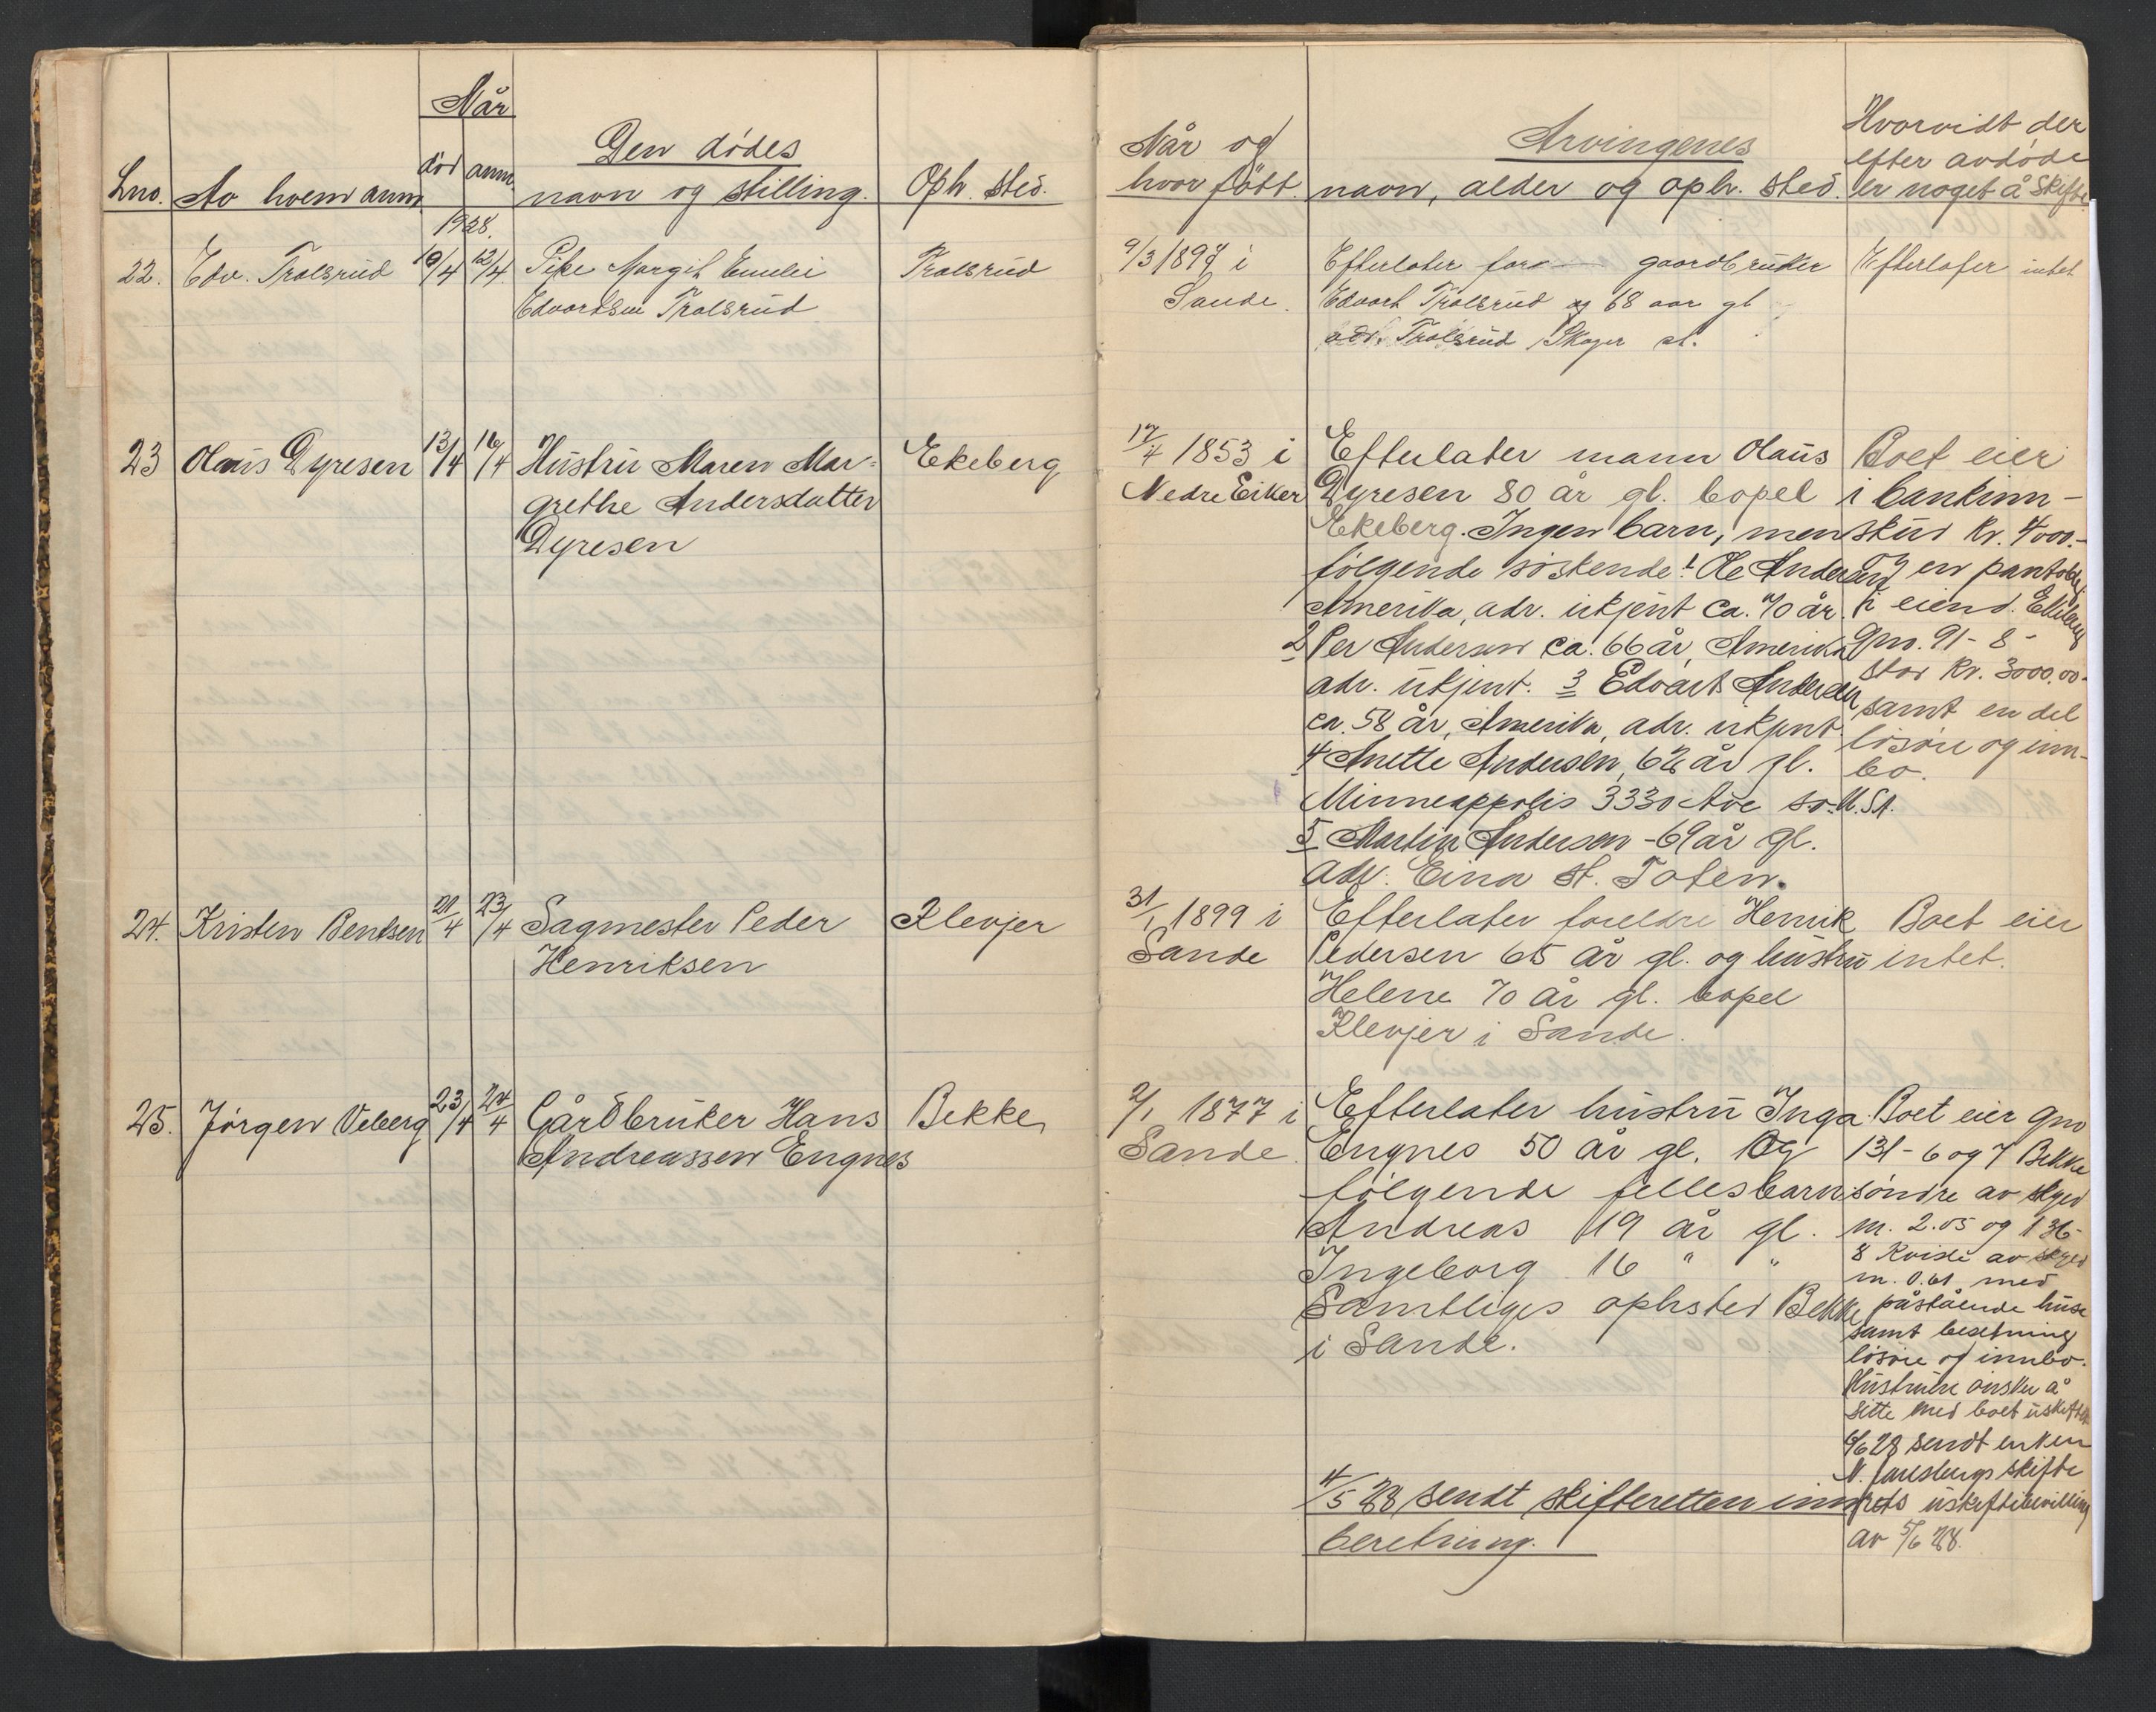 Når
Den dødes
Lno. Av hvem anm. død anm. navn og stilling. Oph. sted.
1928.
22. Edv. Trolsrud 10/4 12/4 Pike Margit Emilie Trolsrud
Edvardsen Trolsrud
23 Olaus Dyresen 13/4 16/4 Hustru Maren Mar= Ekeberg
grethe Andersdatter
Dyresen
24. Kristen Bentsen 21/4 23/4 Sagmester Peder Klevjer
Henriksen
25. Jørgen Veberg 23/4 24/4 Gårdbruker Hans Bekke
Andreassen Engnes
Når og
hvor født.
Arvingenes
navn, alder og oph. sted.
Hvorvidt der
efter avdøde
er noget å skifte
9/3 1897 i
Sande.
Efterlater far gaardbruker
Edvart Trolsrud og 68 aar gl
adr. Trolsrud Skoger st.
Efterlater intet
17/4 1853 i
Nedre Eiker
Efterlater mann Olaus
Dyresen 80 år gl. bopel
Ekeberg. Ingen barn, men
følgende søskende: 1 Ole Andersen
Amerika, adr. ukjent ca. 70 år.
2 Per Andersen ca. 66 år, Amerika
adr. ukjent. 3 Edvart Andersen
ca. 58 år, Amerika, adr. ukjent.
4 Anette Andersen, 62 år gl.
Minneappolis 3330 Ave so. U.SA.
5 Martin Andersen - 69 år gl.
adr. Eina st. Toten.
Boet eier
i bankinn-
skud kr. 4000.-
og en pantobl.
i eiend. Ekeberg
gno. 91 - 8 -
stor kr. 3000.00-
samt en del
løsøre og inn-
bo.
31/1 1899 i
Sande
Efterlater foreldre Henrik
Pedersen 65 år gl. og hustru
Helene 70 år gl. bopel
Klevjer i Sande.
Boet eier
intet.
2/1 1877 i
Sande.
Efterlater hustru Inga
Engnes 50 år gl. Og
følgende fellesbarn:
Andreas 19 år gl.
Ingeborg 16 " "
Samtliges ophsted Bekke
i Sande.
4/5 28 sendt skifteretten inn
beretning.
Boet eier gno
131 - 6 og 7 Bekke
søndre av skyld
m. 2.05 og 136-
8 Kviste av skyld
m. 0.61 med
påstående huse
samt besetning
løsøre og innbo.
Hustruen ønsker å
sitte med boet uskiftet
6/6 28 sendt enken
N. Jarlsbergs skifte
rets uskiftebevilling
av 5/6 28.